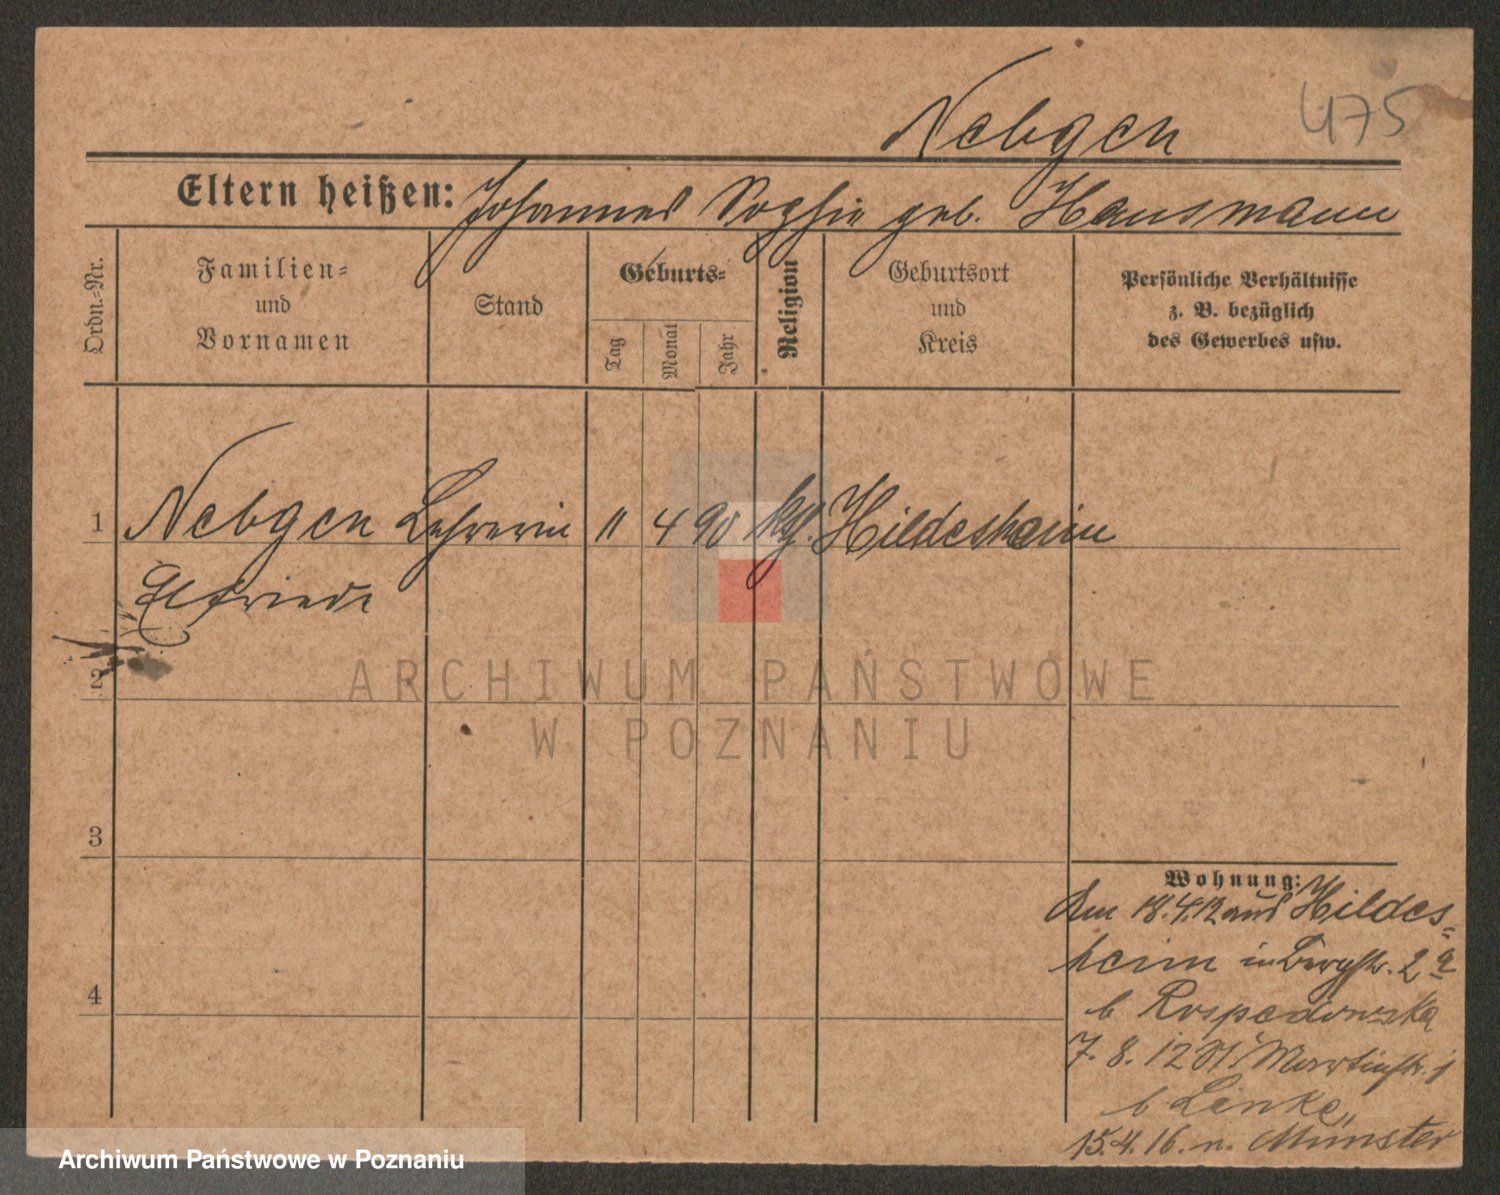 Nebgen
475
Eltern heißen: Johannes Sophie geb. Hausmann
Ordn.-Nr.
Familien-
und
Vornamen
Stand
Geburts-
Tag
Monat
Jahr
Religion
Geburtsort
und
Kreis
Persönliche Verhältnisse
z. B. bezüglich
des Gewerbes usw.
1 Nebgen Lehrerin 11 4 90 kth. Hildesheim
Elfriede
2
ARCHIWUM PAŃSTWOWE
W POZNANIU
3
4
Wohnung:
Am 18.4.12 aus Hildes=
heim in Bergstr. 2a
b Rospedowska
7. 8. 12 St Martinstr.
b Lenke
15.4.16. n. Münster
Archiwum Państwowe w Poznaniu